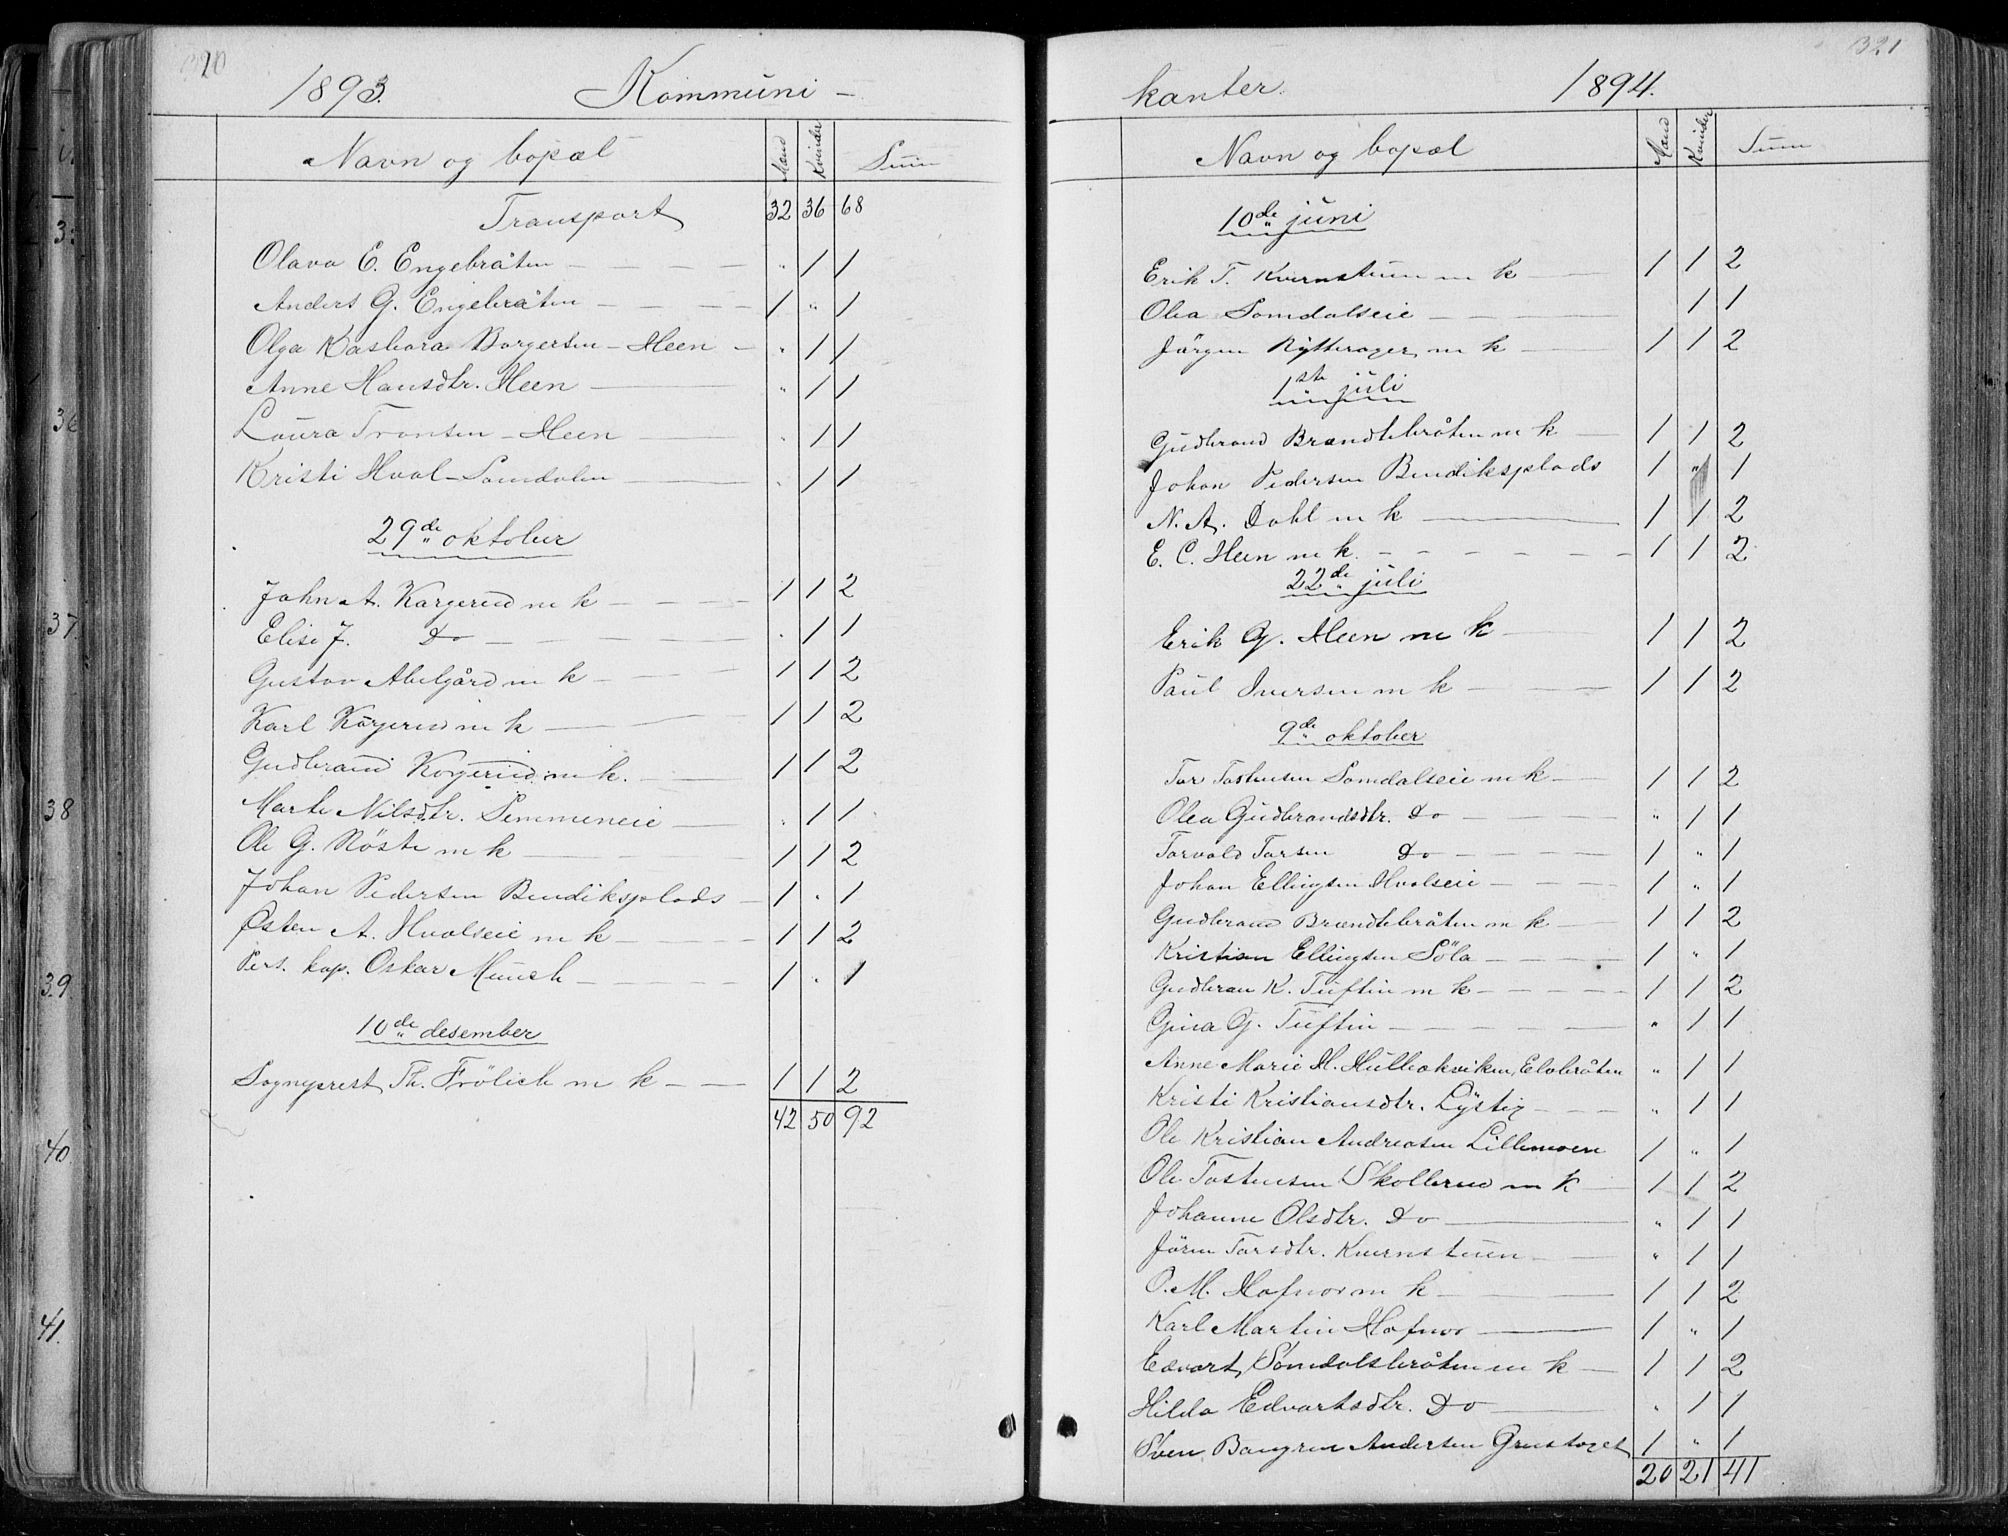 320
1893. Kommuni -
Navn og bopæl Mænd Kvinder Sum
Transport 32 36 68
Olava E. Engebråten - - - " 1 1
Anders G. Engebråten - - - 1 " 1
Olga Barbara Borgersen - Heen - " 1 1
Anne Hansdtr. Heen - " 1 1
Laura Tronsen - Heen - " 1 1
Kristi Hval - Somdalen - " 1 1
29de oktober
John A. Korgerud m k - - - 1 1 2
Elise J. Do - - - " 1 1
Gustav Abelgård m k - - - 1 1 2
Karl Korgerud m k - 1 1 2
Gudbrand Korgerud m k. - 1 1 2
Marte Nilsdtr. Semmeneie - " 1 1
Ole G. Röste m k - 1 1 2
Johan Pedersen Bendiksplads - 1 " 1
Østen A. Hvalseie m k - - - 1 1 2
Pers. kap. Oskar Munch - - - 1 " 1
10de desember
Sogneprest Th. Frölich m k - - 1 1 2
42 50 92
321
kanter. 1894.
Navn og bopæl Mænd Kvinder Sum
10de juni
Erik T. Kvernstuen m k - 1 1 2
Olea Somdalseie - - - 1 1
Jörgen Rytterager m k - 1 1 2
1ste juli
Gudbrand Brændtebråten m k - 1 1 2
Johan Pedersen Bendiksplads 1 " 1
N. A. Dahl m k - 1 1 2
E. C. Heen m k. - - - 1 1 2
22de juli
Erik G. Heen m k - 1 1 2
Paul Iversen m k - - - 1 1 2
9de oktober
Tor Tostensen Somdalseie m k - 1 1 2
Olea Gudbrandsdtr. Do - - - " 1 1
Torvald Torsen Do - - - 1 " 1
Johan Ellingsen Hvalseie - - - 1 " 1
Gudbrand Brændtebråten m k - 1 1 2
Kristian Ellingsen Söla - - - 1 " 1
Gudbran K. Tuftin m k - - - 1 1 2
Gina G. Tuftin - - - " 1 1
Anne Marie H. Hulleakviken, Elvbråten " 1 1
Kristi Kristiansdtr. Lystig - - - " 1 1
Ole Kristian Andreasen Lillemoen 1 " 1
Ole Tostensen Skollerud m k - 1 1 2
Johanne Olsdtr. Do - " 1 1
Jören Torsdtr. Kvernstuen - " 1 1
O. M. Hafnor m k - 1 1 2
Karl Martin Hafnor - 1 " 1
Edvart Somdalsbråten m k - 1 1 2
Hilda Edvartsdtr. Do - " 1 1
Sven Bangren Andersen Grustaget 1 " 1
20 21 41
36
37.
38
39.
40
41.